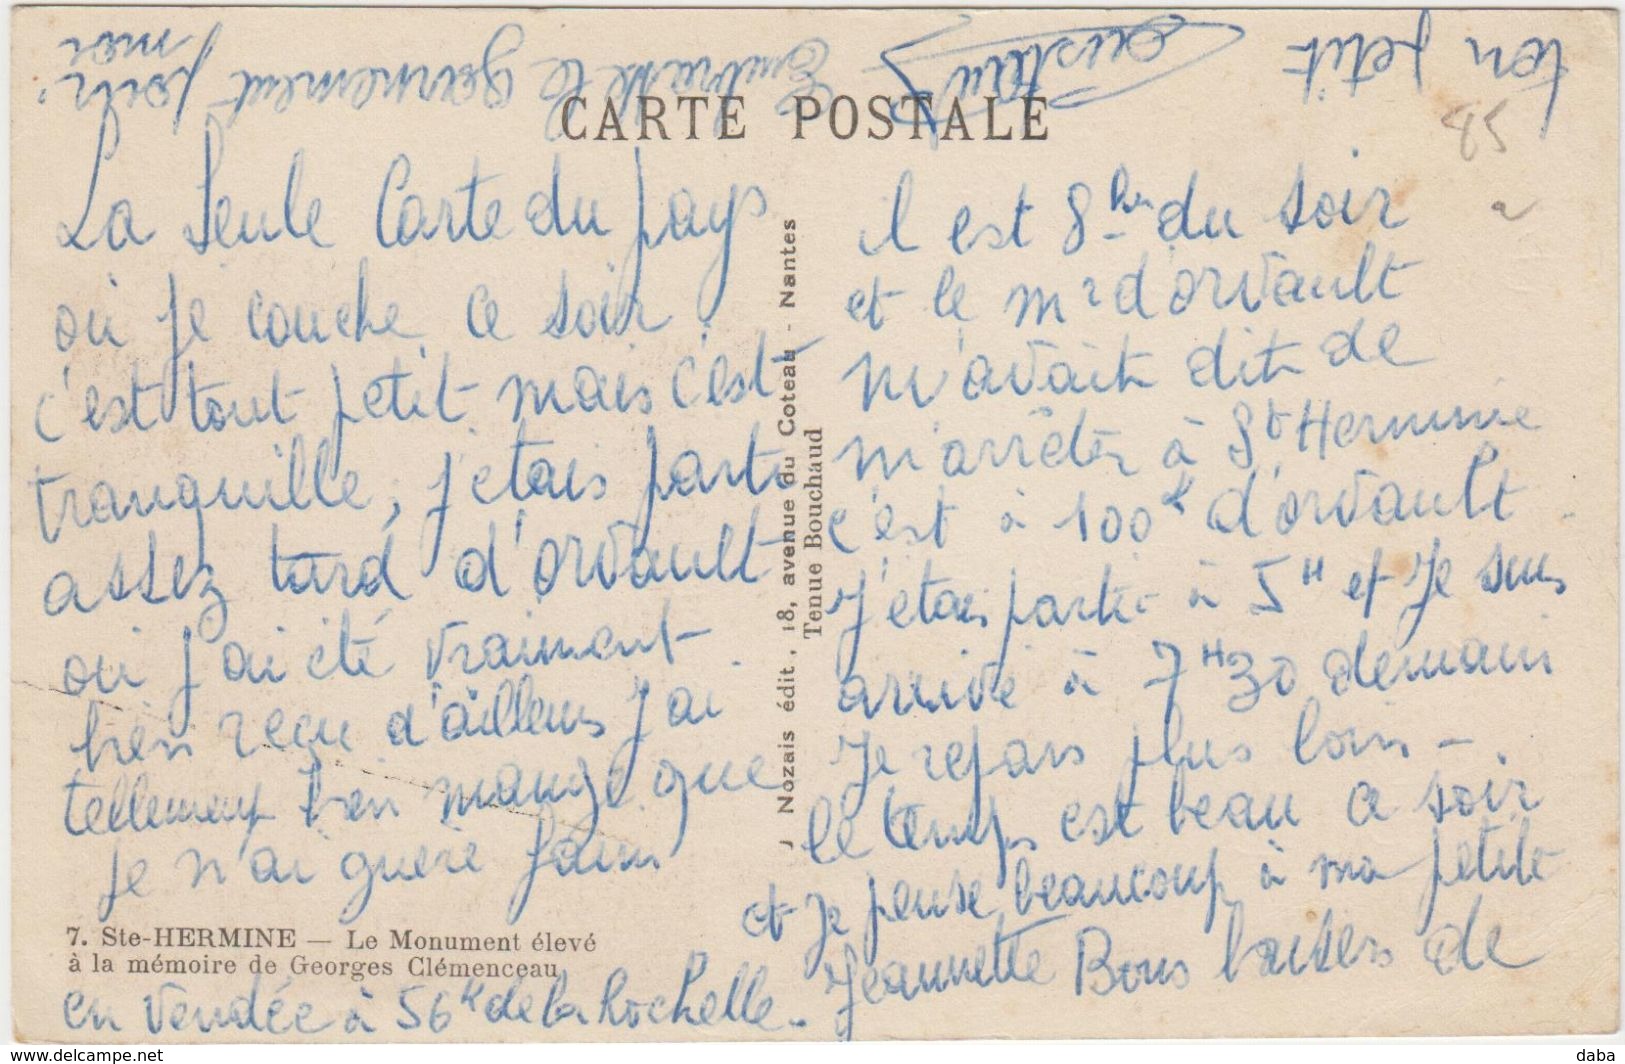 CARTE POSTALE
La Seule Carte du pays
où je couche ce soir
c'est tout petit mais c'est
tranquille, j'étais parti
assez tard d'orvault
où j'ai été vraiment
bien reçu d'ailleurs j'ai
tellement bien mangé que
je n'ai guère faim
7. Ste-HERMINE — Le Monument élevé
à la mémoire de Georges Clémenceau
en Vendée à 56 k de la Rochelle -
J Nozais édit, 18, avenue du Coteau - Nantes
Tenue Bouchaud
il est 8 hrs du soir
et le mr d'orvault
m'avait dit de
m'arrêter à St Hermine
c'est à 100 k d'orvault -
j'étais parti à 5 H et je suis
arrivé à 7 H 30 demain
je repars plus loin -
le temps est beau ce soir
et je pense beaucoup à ma petite
Jeannette Bons baisers de
ton petit
Embrasse le gouvernement pour
moi
85
daba
www.delcampe.net